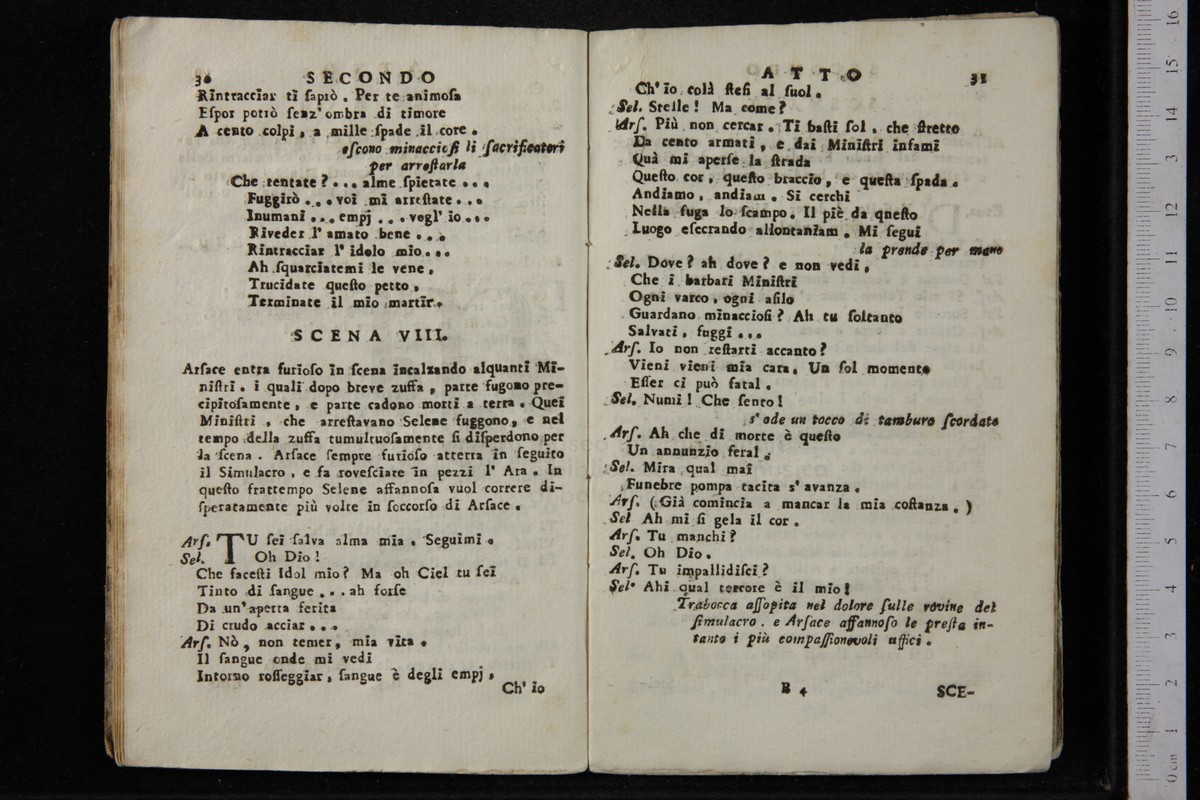 30 SECONDO
Rintracciar ti sapiò . Per te animosa
Espor potiò senz' ombra di timore
A cento colpi , a mille spade il core .
escono minacciosi li sacrificatori
per arrestarla
Che tentate ? . . . alme spietate . . .
Fuggirò . . . voi mi arrestate . . .
Inumani . . . empj . . . vogl' io . . .
Riveder l' amato bene . . .
Rintracciar l' idolo mio . . .
Ah squarciatemi le vene ,
Trucidate questo petto ,
Terminate il mio martir .
SCENA VIII.
Arsace entra furioso in scena incalzando alquanti Mi-
nistri . i quali dopo breve zuffa , parte fugono pre-
cipitosamente , e parte cadono morti a terra . Quei
Ministri , che arrestavano Selene fuggono , e nel
tempo della zuffa tumultuosamente si disperdono per
la scena . Arsace sempre furioso atterra in seguito
il Simulacro , e fa rovesciare in pezzi l' Ara . In
questo frattempo Selene affannosa vuol correre di-
speratamente più volte in soccorso di Arsace .
Ars. TU sei salva alma mia . Seguimi .
Sel. Oh Dio !
Che facesti Idol mio ? Ma oh Ciel tu sei
Tinto di sangue . . . ah forse
Da un' aperta ferita
Di crudo acciar . . .
Ars. Nò , non temer , mia vita .
Il sangue onde mi vedi
Intorno rosseggiar , sangue è degli empj ,
Ch' io
ATTO 31
Ch' io colà stesi al suol .
Sel. Stelle ! Ma come ?
Ars. Più non cercar . Ti basti sol , che stretto
Da cento armati , e dai Ministri infami
Quà mi aperse la strada
Questo cor , questo braccio , e questa spada .
Andiamo , andiam . Si cerchi
Nella fuga lo scampo . Il piè da qnesto
Luogo esecrando allontaniam . Mi segui
la prende per mano
Sel. Dove ? ah dove ? e non vedi ,
Che i barbari Ministri
Ogni varco , ogni asilo
Guardano minacciosi ? Ah tu soltanto
Salvati , fuggi . . .
Ars. Io non restarti accanto ?
Vieni vieni mia cara . Un sol momento
Esser ci può fatal .
Sel. Numi ! Che sento !
s' ode un tocco di tamburo scordato
Ars. Ah che di morte è questo
Un annunzio feral .
Sel. Mira qual mai
Funebre pompa tacita s' avanza .
Ars. ( Già comincia a mancar la mia costanza . )
Sel Ah mi si gela il cor .
Ars. Tu manchi ?
Sel. Oh Dio .
Ars. Tu impallidisci ?
Sel. Ahi qual terrore è il mio !
Trabocca assopita nel dolore sulle rovine del
simulacro . e Arsace affannoso le presta in-
tanto i più compassionevoli uffici .
B 4 SCE-
16
15
14
13
12
11
10
9
8
7
6
5
4
3
2
1
0 cm